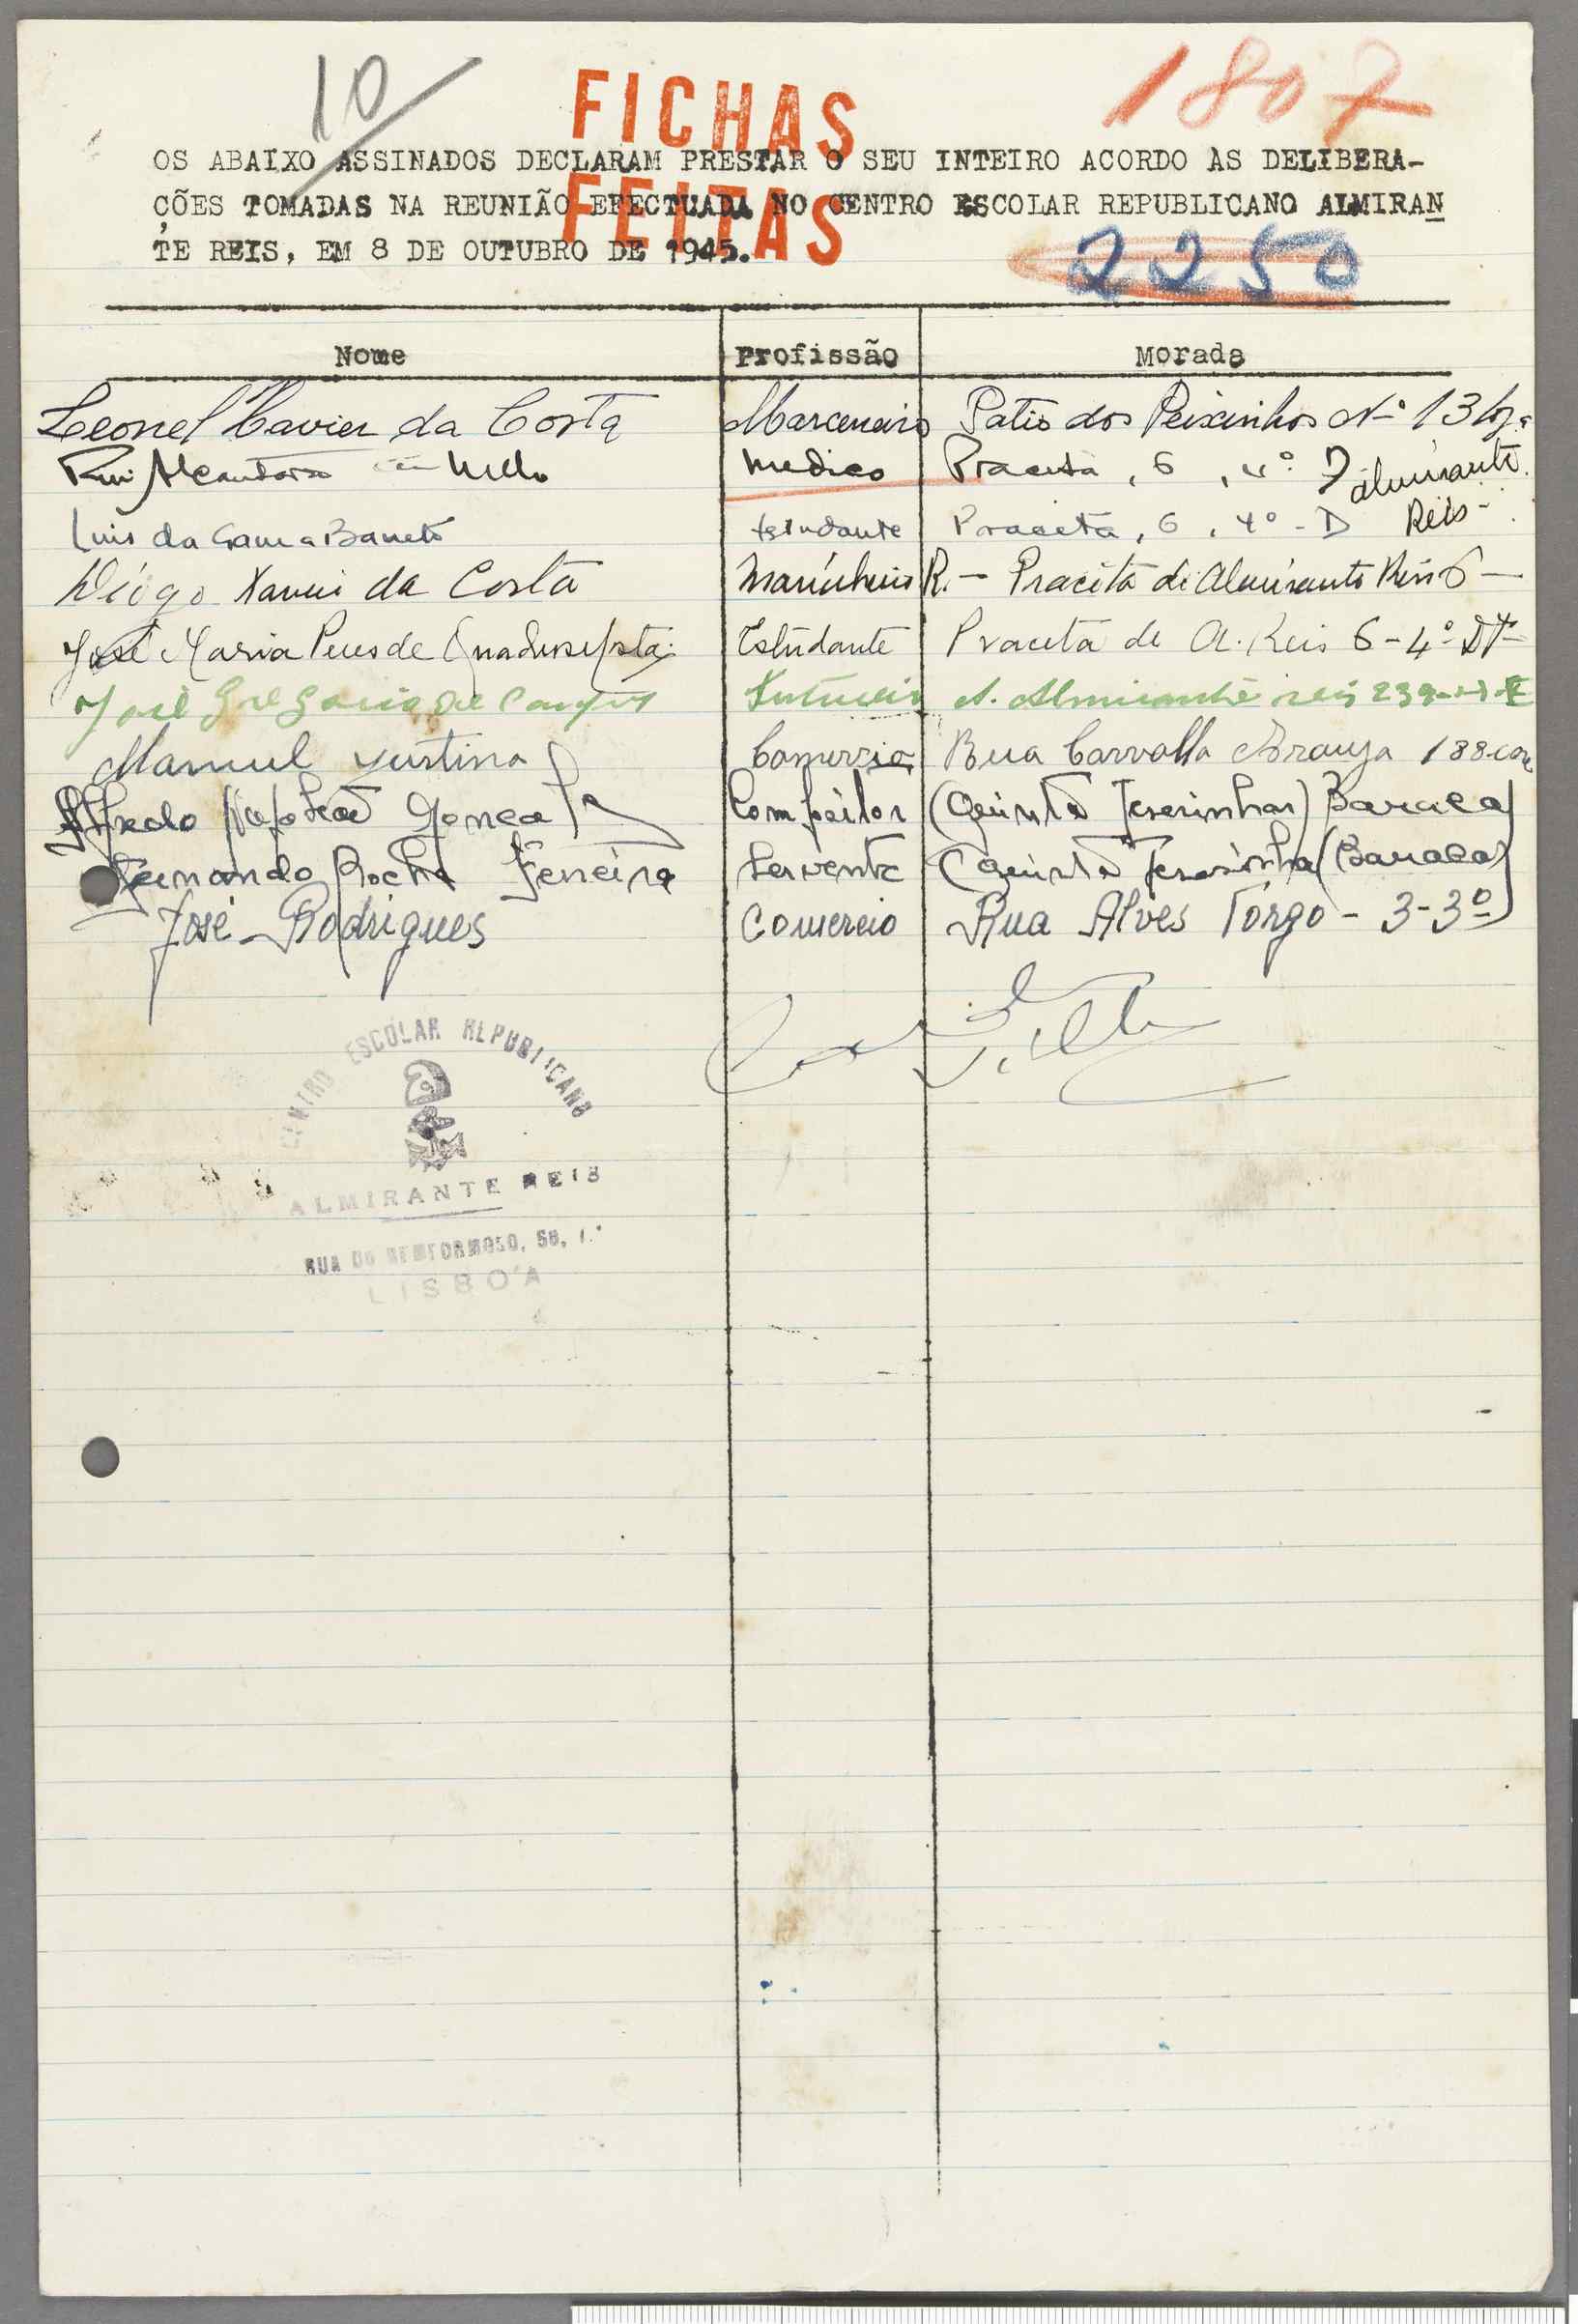 10
1807
FICHAS
FEITAS
OS ABAIXO ASSINADOS DECLARAM PRESTAR O SEU INTEIRO ACORDO ÀS DELIBERA-
ÇÕES TOMADAS NA REUNIÃO EFECTUADA NO CENTRO ESCOLAR REPUBLICANO ALMIRAN
TE REIS, EM 8 DE OUTUBRO DE 1945.
2250
Nome Profissão Morada
Leonel Xavier da Costa Marceneiro Patio dos Peixinhos Nº 13
Rui Alcantara Mello Medico Praceta, 6, 4º D Almirante
Luis da Gama Barreto Estudante Praceta, 6, 4º - D Reis -
Diogo Xavier da Costa Marinheiro R. - Praceta de Almirante Reis 6 -
José Maria Peres de Estudante Praceta de A. Reis 6 - 4º Dto
José Gregorio de Campos A. Almirante reis 239
Manuel Justino Comercio Rua Carvalho Araujo 188
Alfredo Napoleão Compositor (Quinta Teresinhas) Baraca)
Fernando Rocha Ferreira Servente (Quinta Teresinha (Baraca)
José Rodrigues Comercio Rua Alves Torgo - 3-3º
CENTRO ESCOLAR REPUBLICANO
ALMIRANTE REIS
RUA DO BEMFORMOSO, 50, 1.º
LISBOA